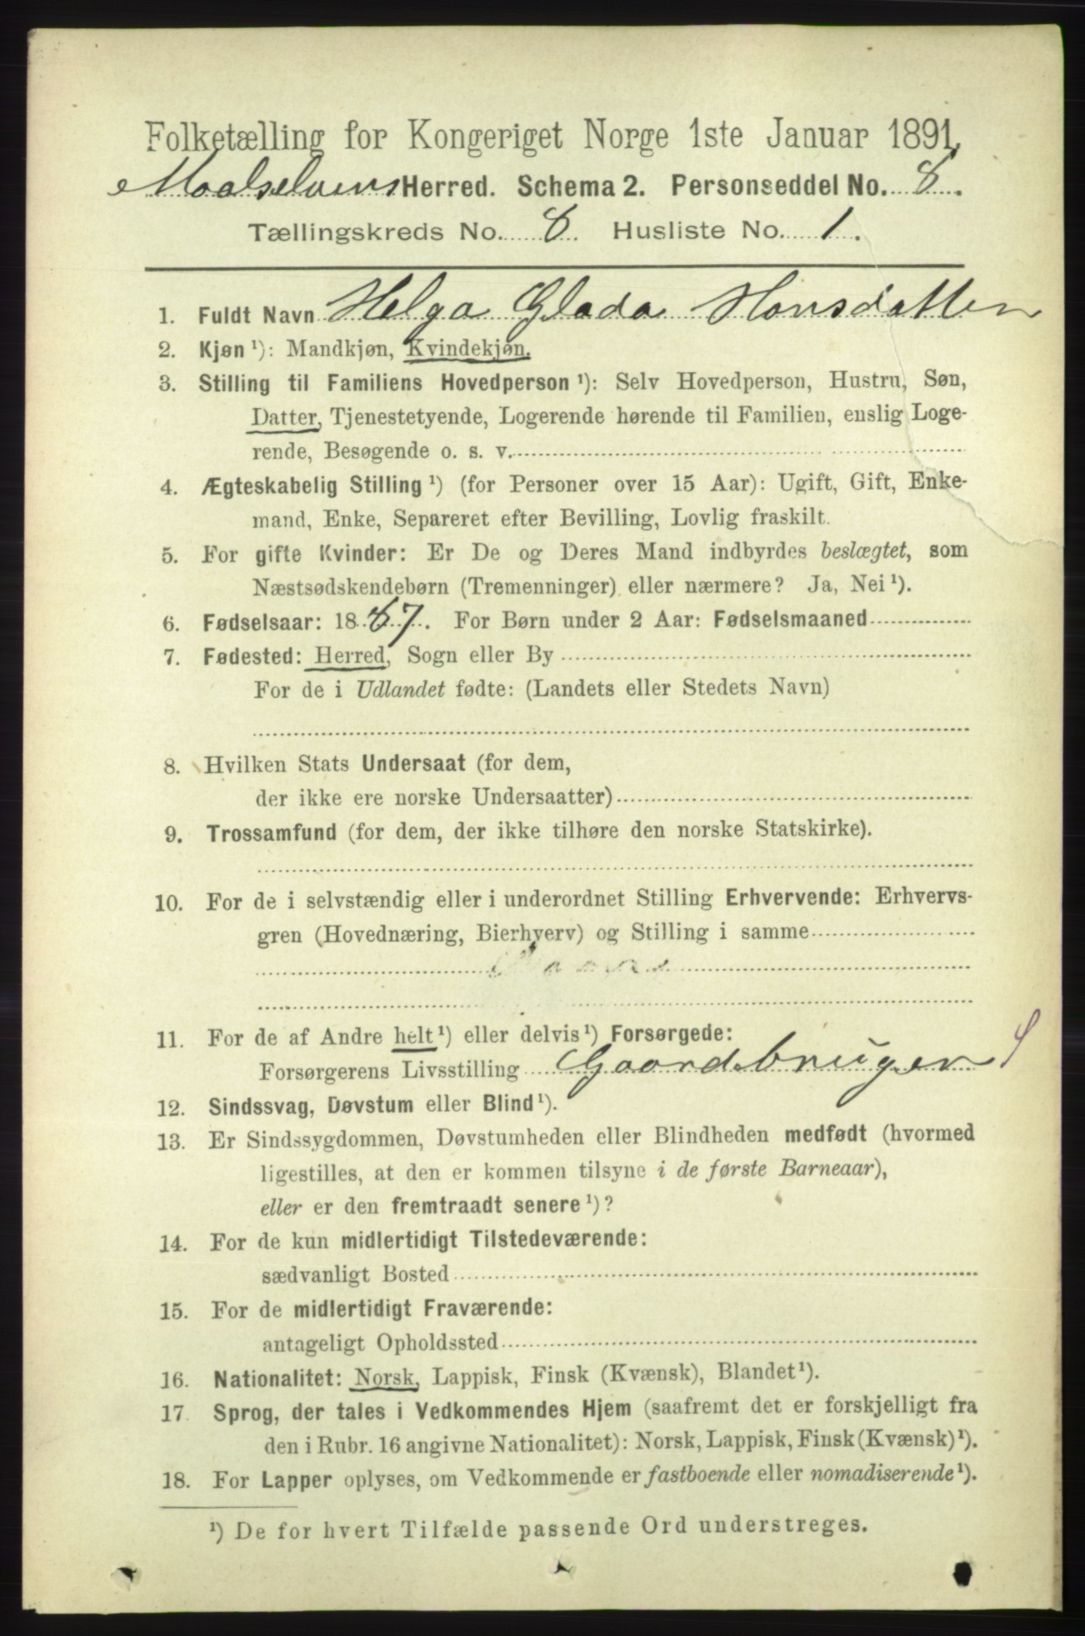 Folketælling for Kongeriget Norge 1ste Januar 1891.
Maalselvens Herred. Schema 2. Personseddel No. 8.
Tællingskreds No. 8 Husliste No. 1.
1. Fuldt Navn Helga Glada Hansdatter
2. Kjøn ¹): Mandkjøn, Kvindekjøn.
3. Stilling til Familiens Hovedperson ¹): Selv Hovedperson, Hustru, Søn,
Datter, Tjenestetyende, Logerende hørende til Familien, enslig Loge-
rende, Besøgende o. s. v.
4. Ægteskabelig Stilling ¹) (for Personer over 15 Aar): Ugift, Gift, Enke-
mand, Enke, Separeret efter Bevilling, Lovlig fraskilt.
5. For gifte Kvinder: Er De og Deres Mand indbyrdes beslægtet, som
Næstsødskendebørn (Tremenninger) eller nærmere? Ja, Nei ¹).
6. Fødselsaar: 1887. For Børn under 2 Aar: Fødselsmaaned
7. Fødested: Herred, Sogn eller By
For de i Udlandet fødte: (Landets eller Stedets Navn)
8. Hvilken Stats Undersaat (for dem,
der ikke ere norske Undersaatter)
9. Trossamfund (for dem, der ikke tilhøre den norske Statskirke).
10. For de i selvstændig eller i underordnet Stilling Erhvervende: Erhvervs-
gren (Hovednæring, Bierhverv) og Stilling i samme
11. For de af Andre helt ¹) eller delvis ¹) Forsørgede:
Forsørgerens Livsstilling Gaardbruger
12. Sindssvag, Døvstum eller Blind ¹).
13. Er Sindssygdommen, Døvstumheden eller Blindheden medfødt (hvormed
ligestilles, at den er kommen tilsyne i de første Barneaar),
eller er den fremtraadt senere ¹)?
14. For de kun midlertidigt Tilstedeværende:
sædvanligt Bosted
15. For de midlertidigt Fraværende:
antageligt Opholdssted
16. Nationalitet: Norsk, Lappisk, Finsk (Kvænsk), Blandet ¹).
17. Sprog, der tales i Vedkommendes Hjem (saafremt det er forskjelligt fra
den i Rubr. 16 angivne Nationalitet): Norsk, Lappisk, Finsk (Kvænsk) ¹).
18. For Lapper oplyses, om Vedkommende er fastboende eller nomadiserende ¹).
¹) De for hvert Tilfælde passende Ord understreges.